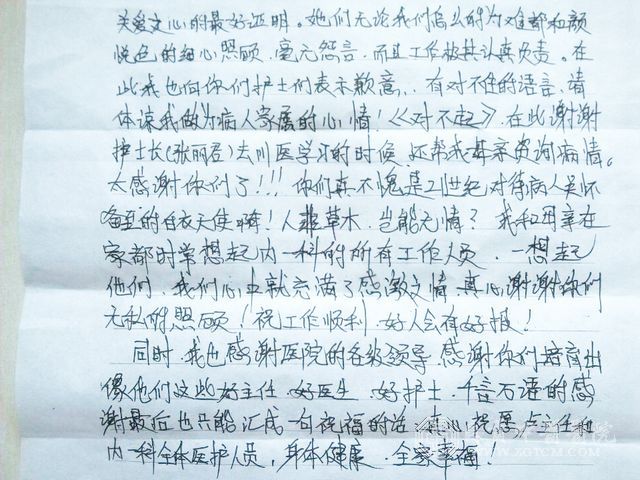 关爱之心的最好证明。她们无论我们怎么的为难都和颜
悦色的细心照顾，毫无怨言，而且工作极其认真负责。在
此我也向你们护士们表示歉意，有对不住的语言，请
体谅我做为病人家属的心情！《对不起》在此谢谢
护士长(张丽君)去川医学习的时候，还帮我母亲资询病情。
太感谢你们了!!! 你们真不愧是21世纪对待病人关怀
备至的白衣天使啊！人非草木，岂能无情？我和母亲在
家都时常想起内一科的所有工作人员，一想起
他们，我们心中就充满了感激之情，真心谢谢你们
无私的照顾！祝工作顺利，好人会有好报！
同时，我也感谢医院的各级领导，感谢你们培育出
像他们这些好主任、好医生、好护士，千言万语的感
谢最后也只能汇成一句祝福的话，真心祝愿 主任和
内一科全体医护人员，身体健康，全家幸福。
WWW.ZGTCM.COM